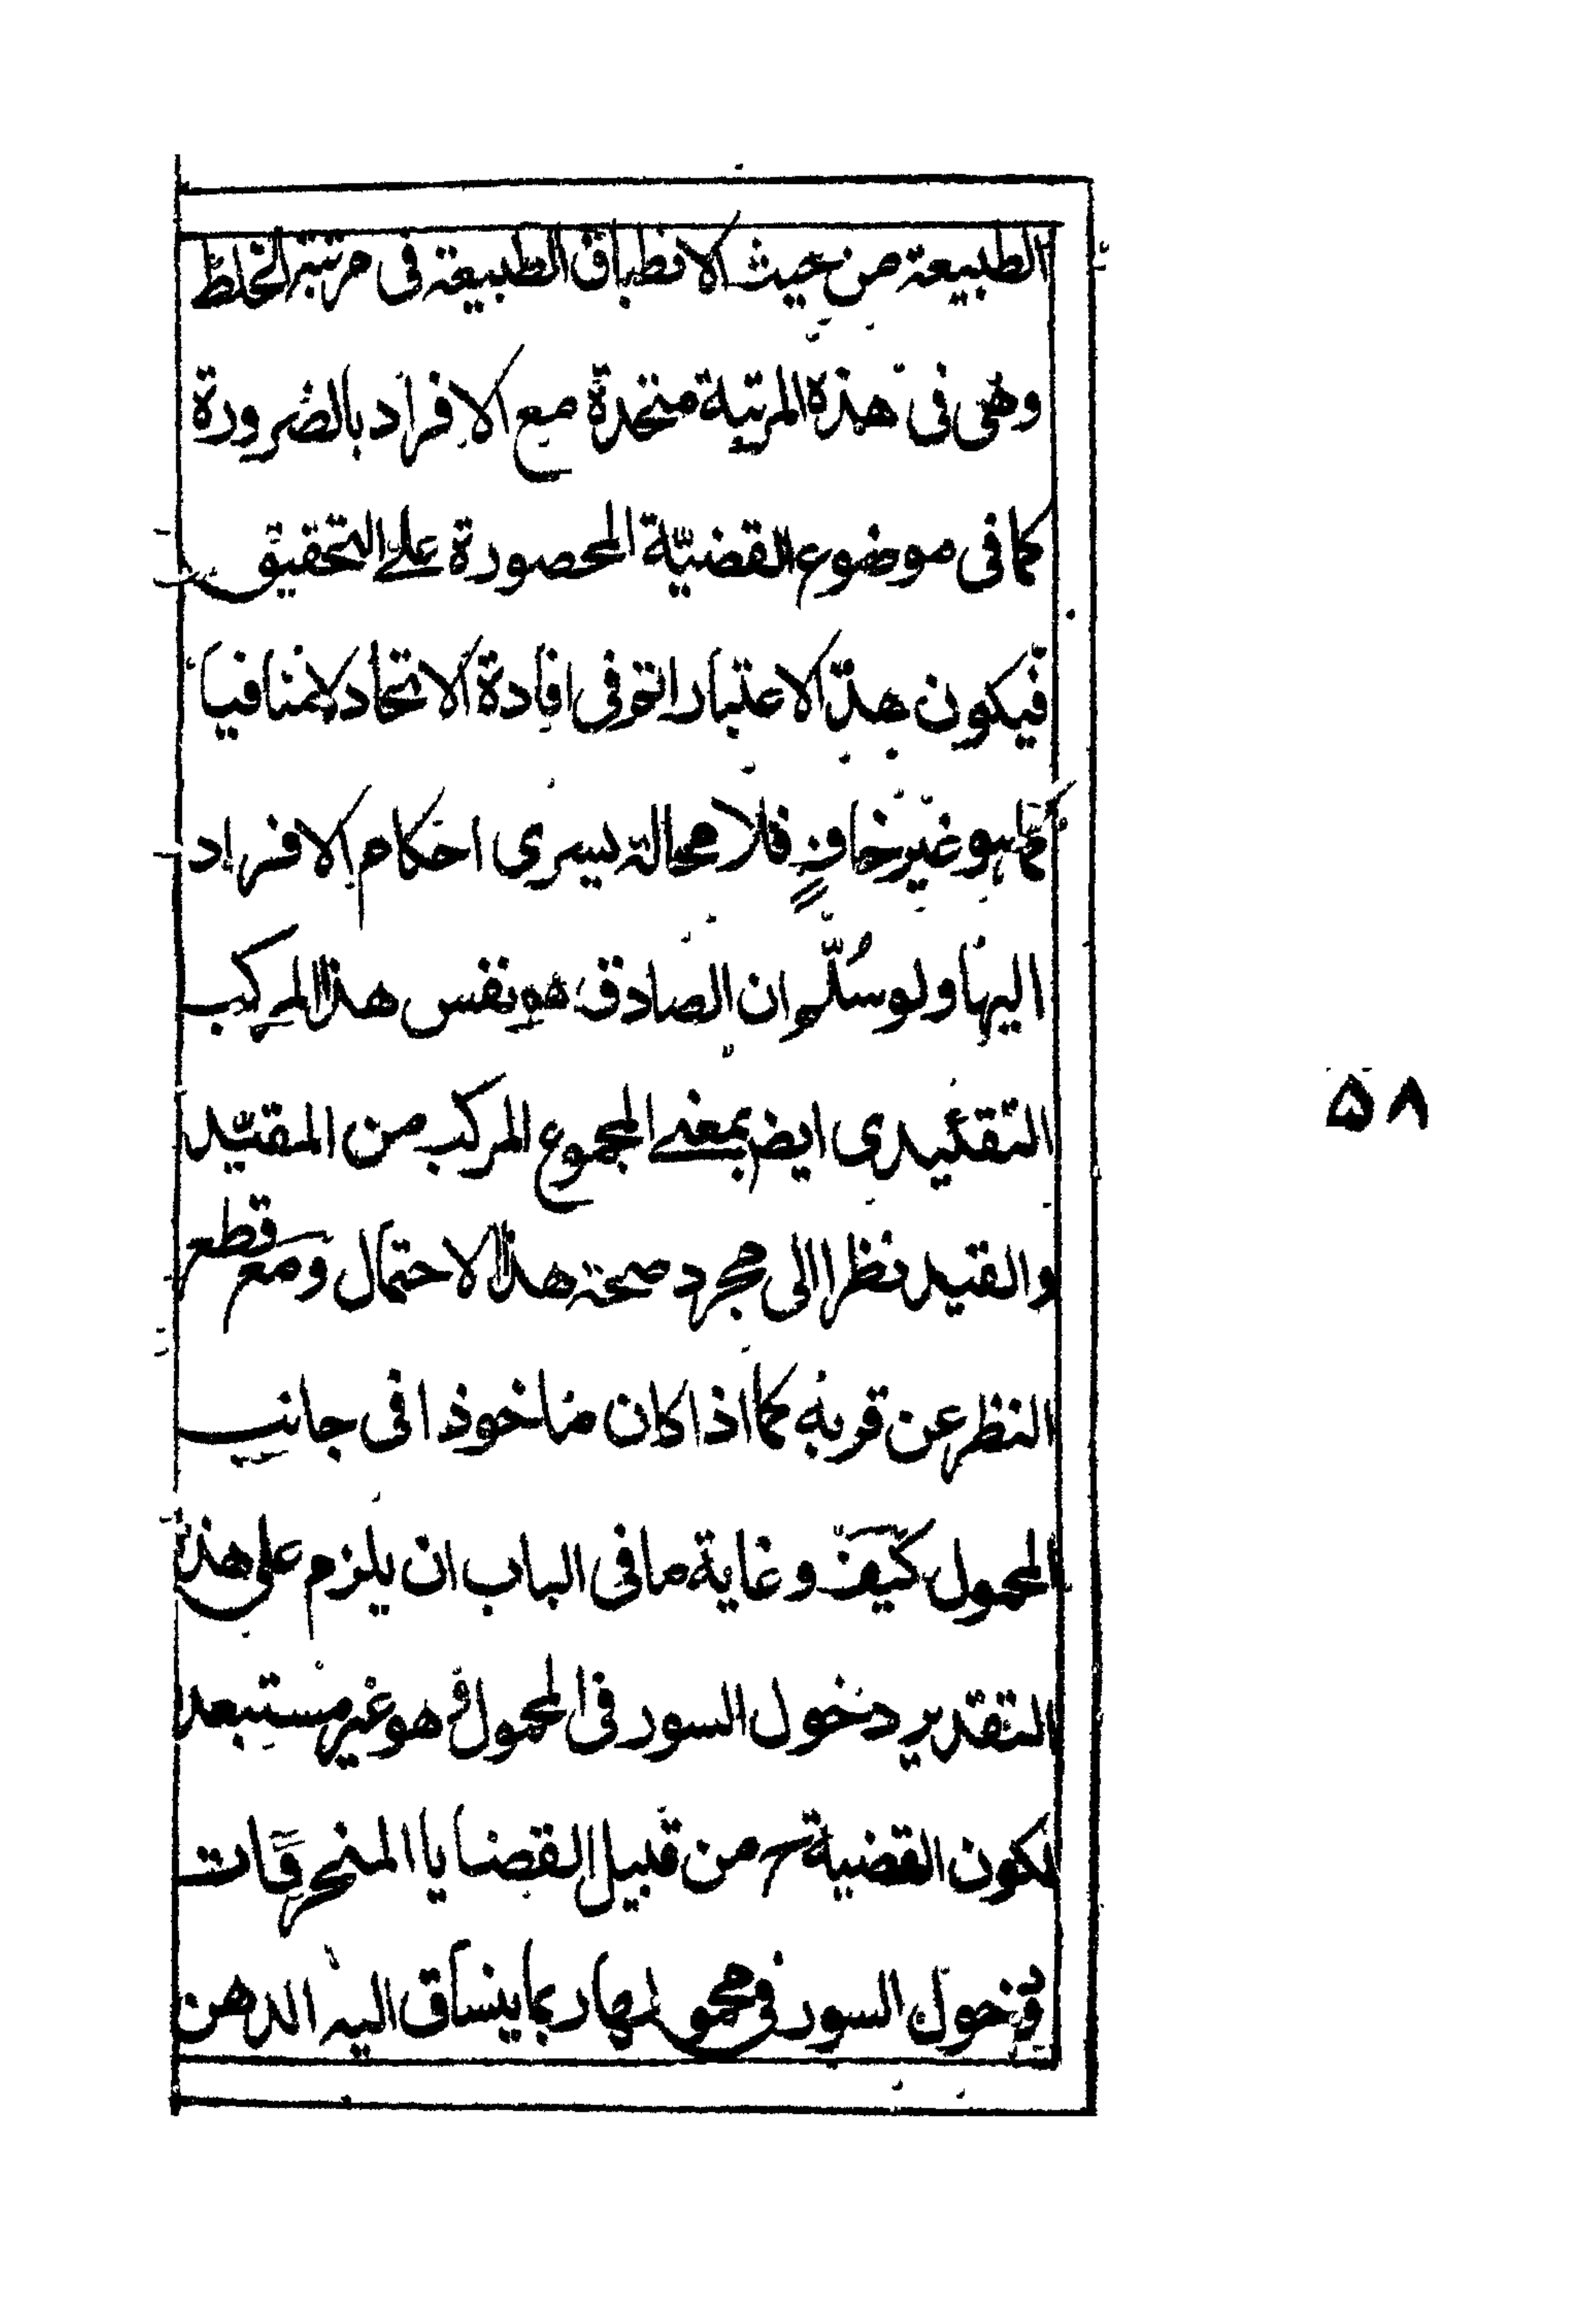 الطبيعة من حيث الانطباق الطبيعة فى مرتبة الخلط
وهى فى هذه المرتبة متحدة مع الافراد بالضرورة
كما فى موضوع القضيّة المحصورة على التحقيق
فيكون هذا الاعتبار فى افادة الاتحاد لا منافيا
كما هو غير خافٍ فلا محالة يسرى احكام الافراد
اليها ولو سُلّم ان الصادق هو نفس هذا المركب
التقئيدى ايض بمعنے المجموع المركب من المقيّد
والقيد نظرا الى مجرد صحة هذا الاحتمال ومع قطع
النظر عن قربه كما اذا كان ماخوذا فى جانب
المحمول كيف وغاية ما فى الباب ان يلزم على هذا
التقدير دخول السور فى المحمول وهو غير مستبعد
لكون القضية من قبيل القضايا المنحرفات
ودخول السور فى محمولها ربما ينساق اليه الذهن
۵۸